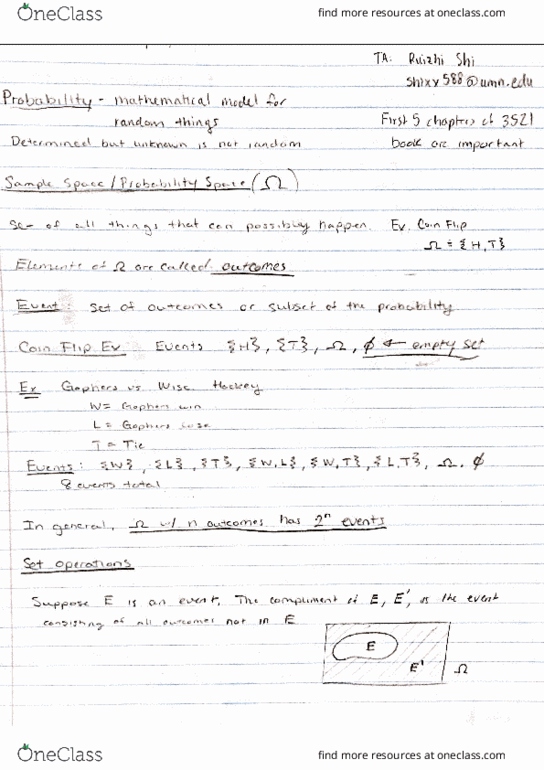 OneClass find more resources at oneclass.com
TA: Ruizhi Shi
shixx588@umn.edu
Probability - mathematical model for
random things
First 5 chapters of 3521
Determined but unknown is not random
book are important
Sample Space/Probability Space (Ω)
Set of all things that can possibly happen. Ex. Coin Flip
Ω = {H,T}
Elements of Ω are called outcomes
Event: set of outcomes or subset of the probability
Coin Flip Ex: Events {H}, {T}, Ω, ∅ ← empty set
Ex Gophers vs Wisc Hockey
W= Gophers win
L= Gophers lose
T= Tie
Events: {W}, {L}, {T}, {W,L}, {W,T}, {L,T}, Ω, ∅
8 events total
In general, Ω w/ n outcomes has 2ⁿ events
Set operations
Suppose E is an event. The compliment of E, E', is the event
consisting of all outcomes not in E
E
E' Ω
OneClass find more resources at oneclass.com